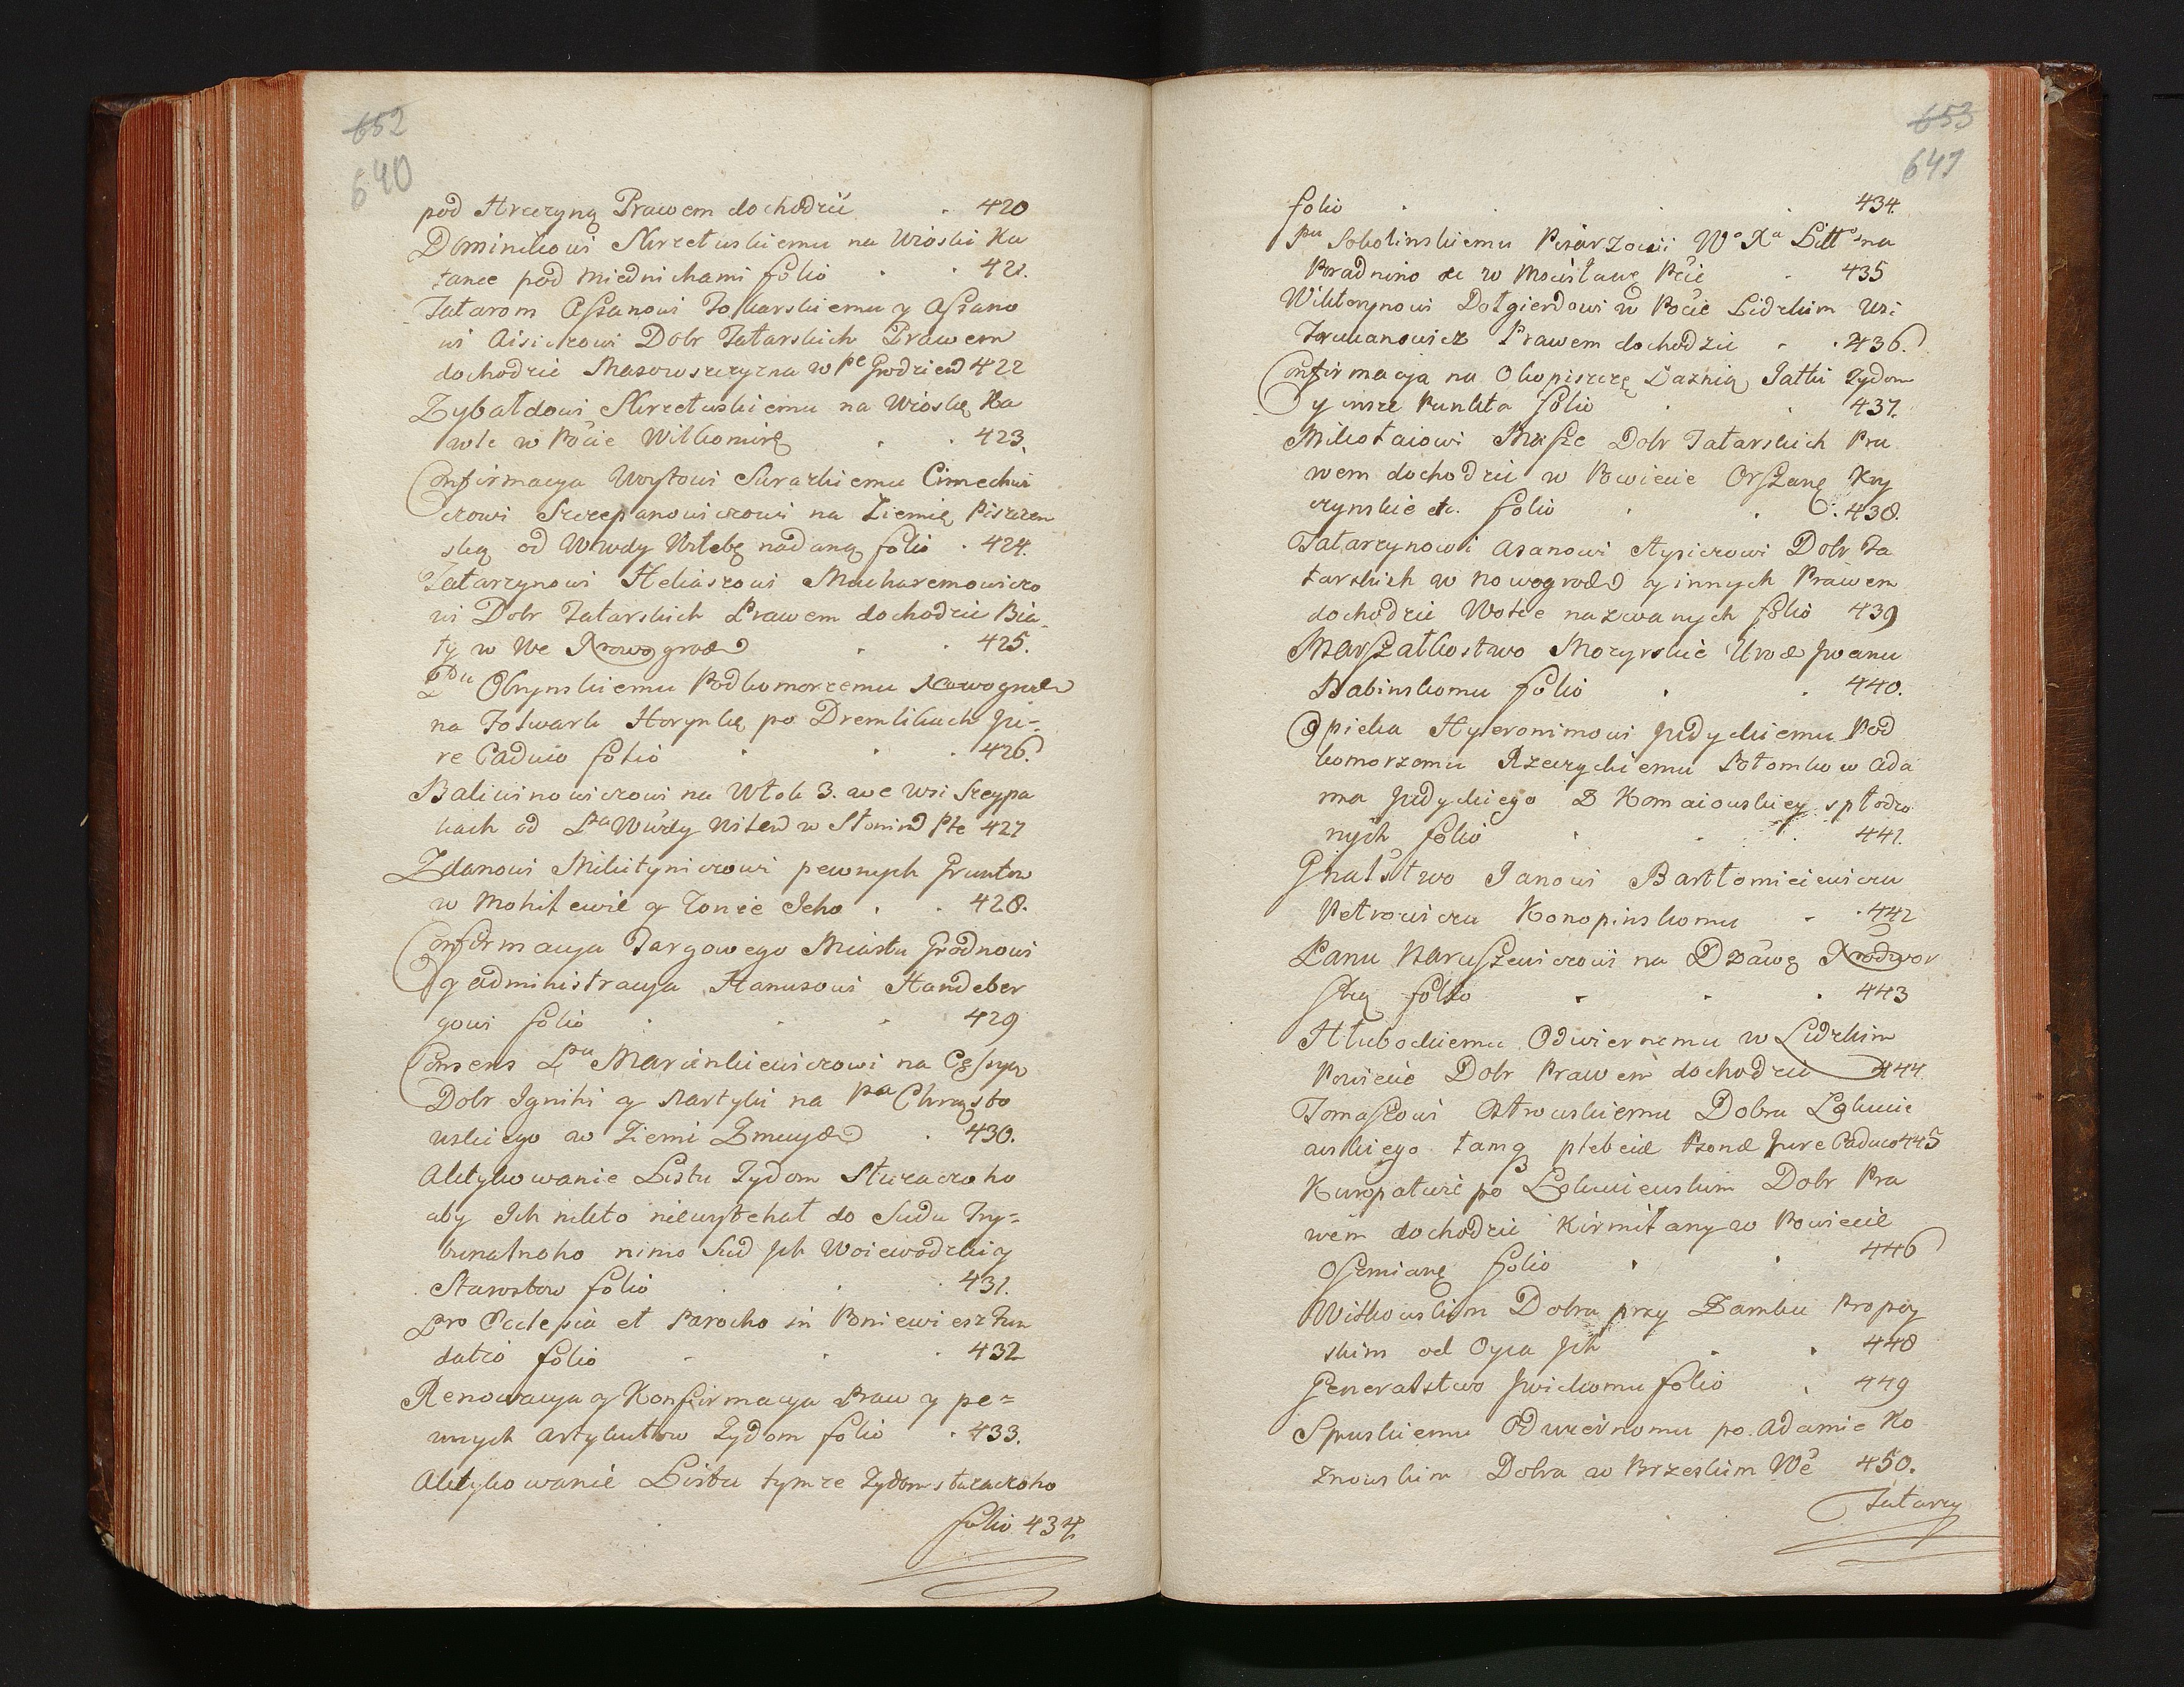 652
640
pod Hreczyną Prawem dochodzić . 420
Dominikowi Skrzetuskiemu na Wioski Ka
tance pod Miednikami folio . . 421.
Tatarom Assanowi Tokarskiemu y Assano
wi Aisiczowi Dobr Tatarskich Prawem
dochodzić Mazowszczyzna w Pe Grodzień 422
Zybałdowi Skrzetuskiemu na Wioskę Ka
wle w Pocie Wilkomirs . . 423.
Confirmacya Woytowi Surazkiemu Cimechwi
czowi Szczepanowiczowi na Ziemię Piszczen
ską od Wwdy Witebs nadaną folio . 424.
Tatarzynowi Heliaszowi Macharemowiczo
wi Dobr Tatarskich Prawem dochodzić Bia
ły w We Nowogrod . . 425.
Pnu Obrynskiemu Podkomorzemu Nowogrod
na Folwark Horynkę po Dremlikach Ju=
re Caduco folio . . . 426.
Balicinowiczowi na Włok 3. we Wsi Szeypa
kach od Pna Wwdy Witeb w Słonim Pte 427
Zdanowi Mikityniczowi pewnych Gruntow
w Mohilewie y Żonie Jeho . . 428.
Confirmacya Targowego Miastu Grodnowi
y administracya Hanusowi Handeber
gowi folio . . . 429
Consens Pnu Marcinkiewiczowi na Cessyą
Dobr Igniki y Nartyki na Pna Chrząsto
wskiego w Ziemi Żmuyd . 430.
Aktykowanie Listu Żydom Stuzaczoho
aby Ich nikto niewystehał do Sudu Try=
bunalnoho nimo Sud Jch Woiewodzki y
Starostow folio . . 431.
Pro Ecclesia et Parocho in Poniewiesz Fun
datio folio . . . 432
Renowacya y Konfirmacya Praw y pe=
wnych Artykułow Żydom folio . 433.
Aktykowanie Listu tymze Żydom stuzaczoho
folio 434.
653
641
folio . . . . 434.
Pnu Sokolinskiemu Pisarzowi Wo Xa Litto na
Poradnino etc w Mścisławs Pcie . 435
Wiktorynowi Dołgierdowi w Pocie Lidzkim Wsi
Trukanowicz Prawem dochodzić . . 436.
Confirmacya na Okopiszczę Łaznią Jatki Żydom
y insze Punkta folio . . 437.
Mikołaiowi Musze Dobr Tatarskich Pra
wem dochodzić w Powiecie Orszans Kry
czynskie etc. folio . . . 438.
Tatarzynowi Asanowi Aysiczowi Dobr Ta
tarskich w Nowogrod y innych Prawem
dochodzić Wotce nazwanych folio 439
Marszałkostwo Mozyrskie Urod Jwanu
Babinskomu folio . . 440.
Opieka Hyeronimowi Judyckiemu Pod
komorzemu Rzeczyckiemu Potomkow Ada
ma Judyckiego Z Komaiowskiey spłodzo
nych folio . . . 441.
Ihalstwo Janowi Bartłomieiewiczu
Petrowiczu Konopinskomu . . 442
Panu Naruszewiczowi na Dzawę Nowodwor
ską folio . . . 443
Hłubockiemu Odwiernemu w Lidzkim
Powiecie Dobr Prawem dochodzić 444
Tomaszowi Ostrowskiemu Dobra Łokucie
wskiego tamq plebeiae Personae Jure Caduco 445
Kuropatwie po Łokuciewskim Dobr Pra
wem dochodzić Kirmiłany w Powiecie
Oszmians folio . . 446
Witkowskim Dobra przy Zamku Propoy
skim od Oyca Jch . . 448
Generalstwo Jwickomu folio . 449
Spuskiemu Odwiernomu po Adamie Ko
znowskim Dobra w Brzeskim We 450.
Tatarzy